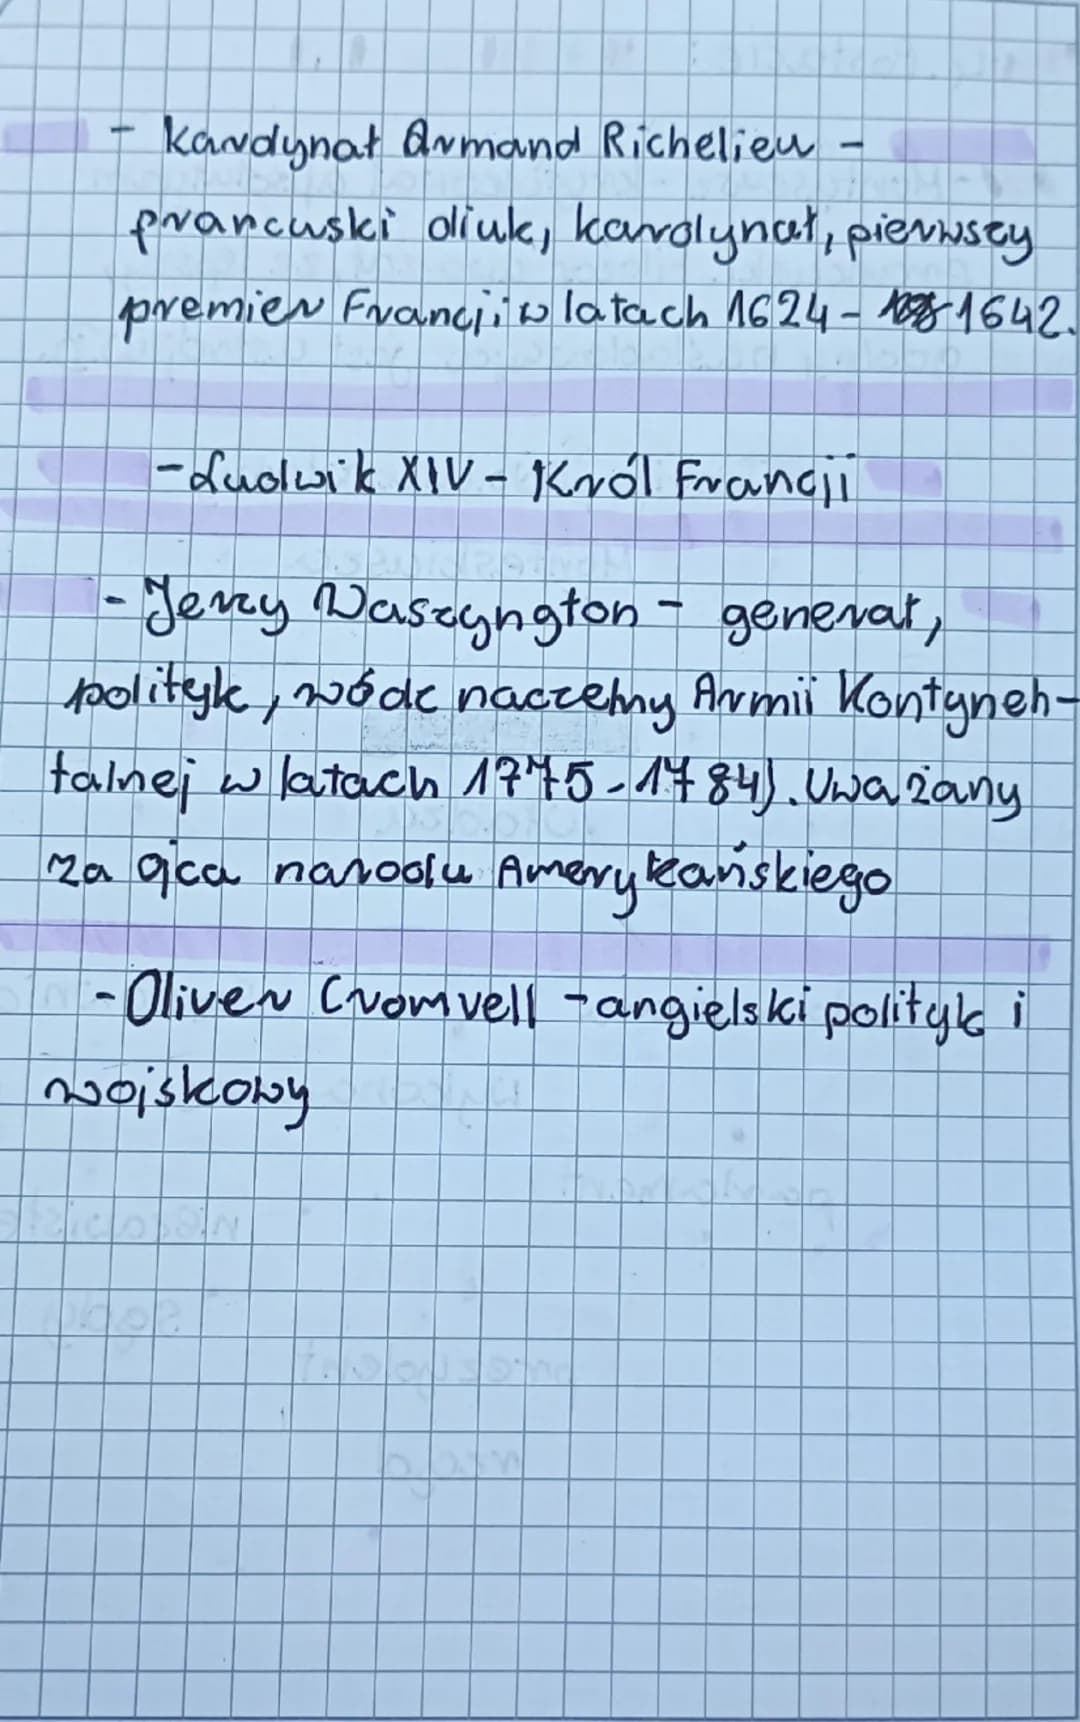 - Kardynał Armand Richelieu -
francuski diuk, kardynał, pierwszy
premier Francji w latach 1624 - 1642.
- Ludwik XIV - Król Francji
- Jerzy Waszyngton - generał,
polityk, wódz naczelny Armii Kontynen-
talnej w latach 1775-1784). Uważany
za ojca narodu Amerykańskiego
- Oliver Cromvell - angielski polityk i
wojskowy